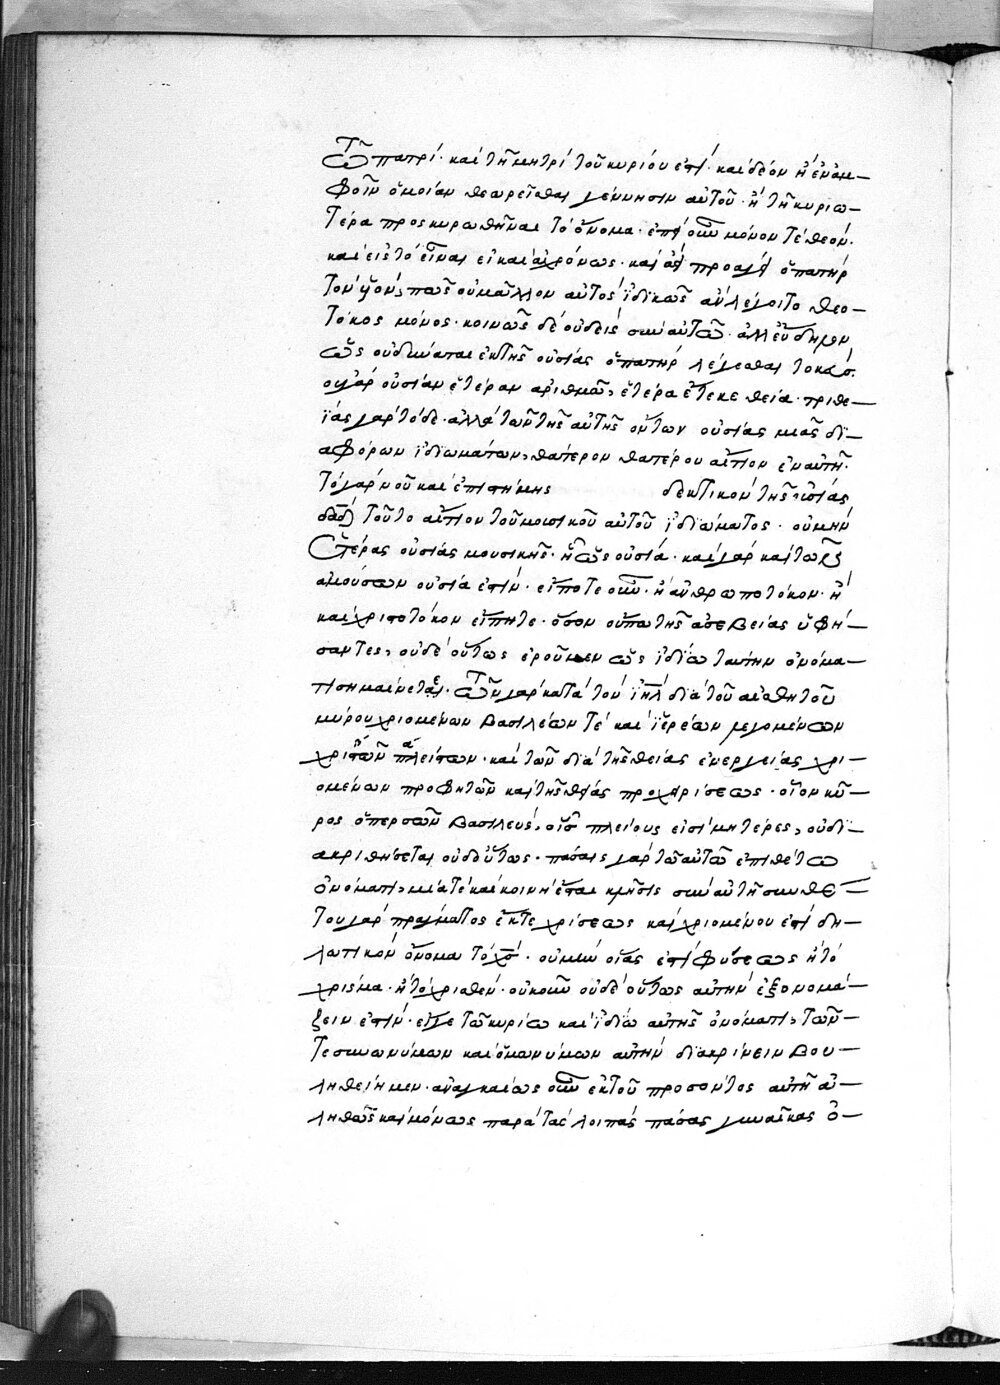 τῶ πατρί· καὶ τῆ μητρί τοῦ κυρίου ἐστί· καὶ δέον ἢ ἐν ἀμ—
φοῖν ὁμοίαν θεωρεῖσθαι γέννησιν αὐτοῦ· ἢ τῆ κυριω—
τέρα προσκυρωθῆναι τὸ ὄνομα· ἐπεὶ οὖν μόνον τὲ θεόν·
καὶ εἰς τὸ εἶναι εἰ καὶ ἀχρόνως· καὶ ἀεὶ προάγει ὁ πατὴρ
τὸν υἱόν, πῶς οὐ μᾶλλον αὐτὸς ἰδικῶς ἂν λέγοιτο θεο—
τόκος μόνος· κοινῶς δὲ οὐδεὶς σὺν αὐτῶ· ἀλλ' εὔδηλον
ὡς οὐ δύναται ἐκ τῆς οὐσίας ὁ πατὴρ λέγεσθαι τοκεύς·
οὐ γὰρ οὐσίαν ἑτέραν ἀριθμῶ, ἑτέρα ἔτεκε θεία· τριθε—
ΐας γὰρ τόδε· ἀλλὰ τῶν τῆς αὐτῆς ὄντων οὐσίας μιᾶς δι—
αφόρων ἰδιωμάτων, θάτερον θατέρου αἴτιον ἐν αὐτῆ·
τὸ γὰρ νοῦ καὶ ἐπιστήμης δεκτικὸν τῆς οὐσίας
τοῦτο αἴτιον τοῦ μουσικοῦ αὐτοῦ ἰδιώματος· οὐ μὴν
ἑτέρας οὐσίας μουσικῆς· ἢ ὡς οὐσία· καὶ γὰρ καὶ τῶν
ἀμούσων οὐσία ἐστίν· εἴποτε οὖν· ἢ ἀνθρωποτόκον· ἢ
καὶ χριστοτόκον εἴπητε· ὅσον οὔπω τῆς ἀσεβείας ὑφή—
σαντες, οὐδὲ οὕτως ἐροῦμεν ὡς ἰδίω ταύτην ὀνόμα—
τι σημαίνεται· τῶν γὰρ κατὰ τὸν ἰηλ διὰ τοῦ αἰσθητοῦ
μύρου χριομένων βασιλέων τὲ καὶ ἱερέων λεγομένων
χριστῶν πλείστων· καὶ τῶν διὰ τῆς θείας ἐνεργείας χρι—
ομένων προφητῶν καὶ τῆς θείας προχειρίσεως· οἷον κῦ—
ρος ὁ περσῶν βασιλεύς, οἷς πλείους εἰσὶ μητέρες, οὐ δι—
ακριθήσεται οὐδ' οὕτως· πάσαις γὰρ τῶ αὐτῶ ἐπιθέτω
ὀνόματι, μία τὲ καὶ κοινὴ ἔσται κλῆσις σὺν αὐτῆ συνθέ—
του γὰρ πράγματος ἔκ τε χρίσεως καὶ χριομένου ἐστὶ δη—
λωτικὸν ὄνομα τὸ χς· οὐ μὴν οἵας ἐστὶ φύσεως ἢ τὸ
χρίσμα· ἢ τὸ χρισθέν· οὐκοῦν οὐδὲ οὕτως αὐτὴν ἐξονομά—
ζειν ἐστίν· εἴγε τῶ κυρίω καὶ ἰδίω αὐτῆς ὀνόματι, τῶν—
τε συνωνύμων καὶ ὁμωνύμων αὐτὴν διακρίνειν βου—
ληθείημεν· ἀναγκαίως οὖν ἐκ τοῦ προσόντος αὐτῆ ἀ—
ληθῶς καὶ μόνως παρὰ τὰς λοιπάς πάσας γυναῖκας ὀ—